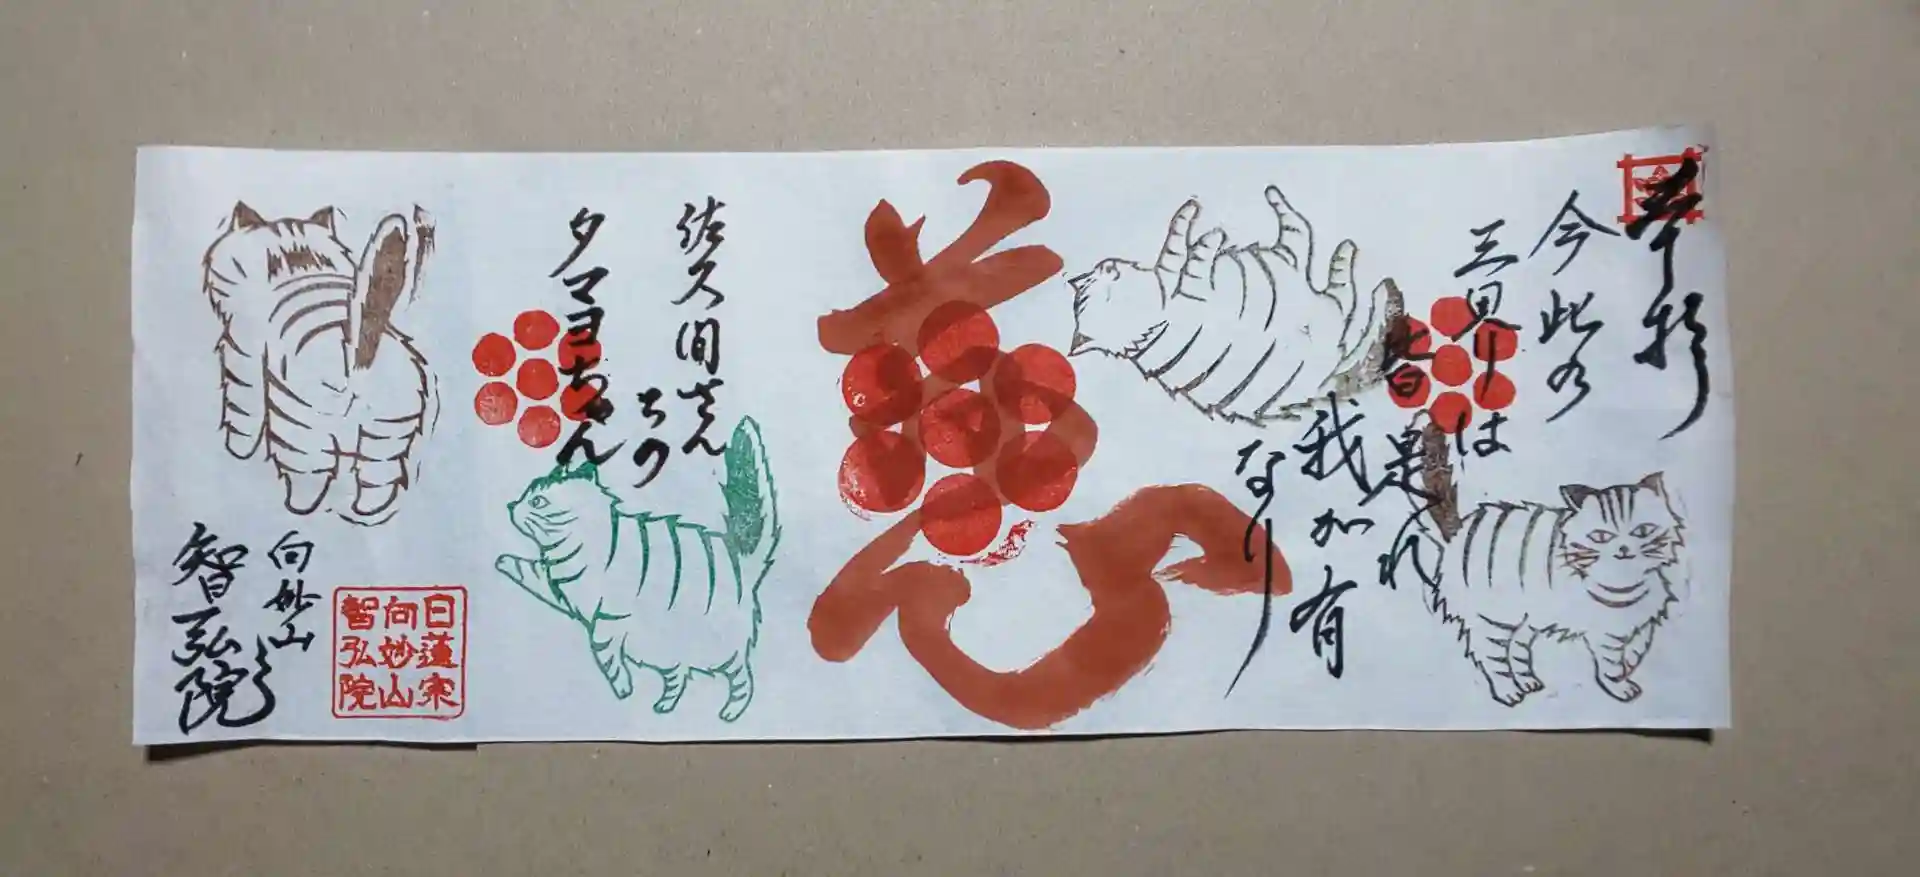 奉拝
今此の
三界は
皆
是れ
我が有
なり
慈
佐久間さん
ちの
タマヨちゃん
向妙山
智弘院
日蓮宗
向妙山
智弘院